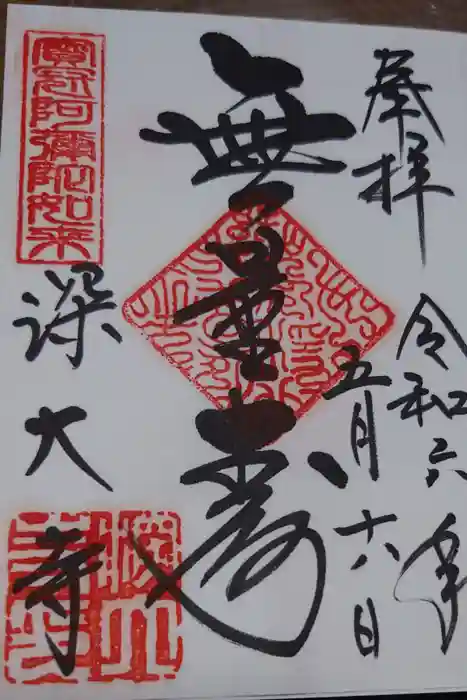 奉拝
令和六年
五月十八日
無量寿
寳冠阿彌陀如来
深大寺